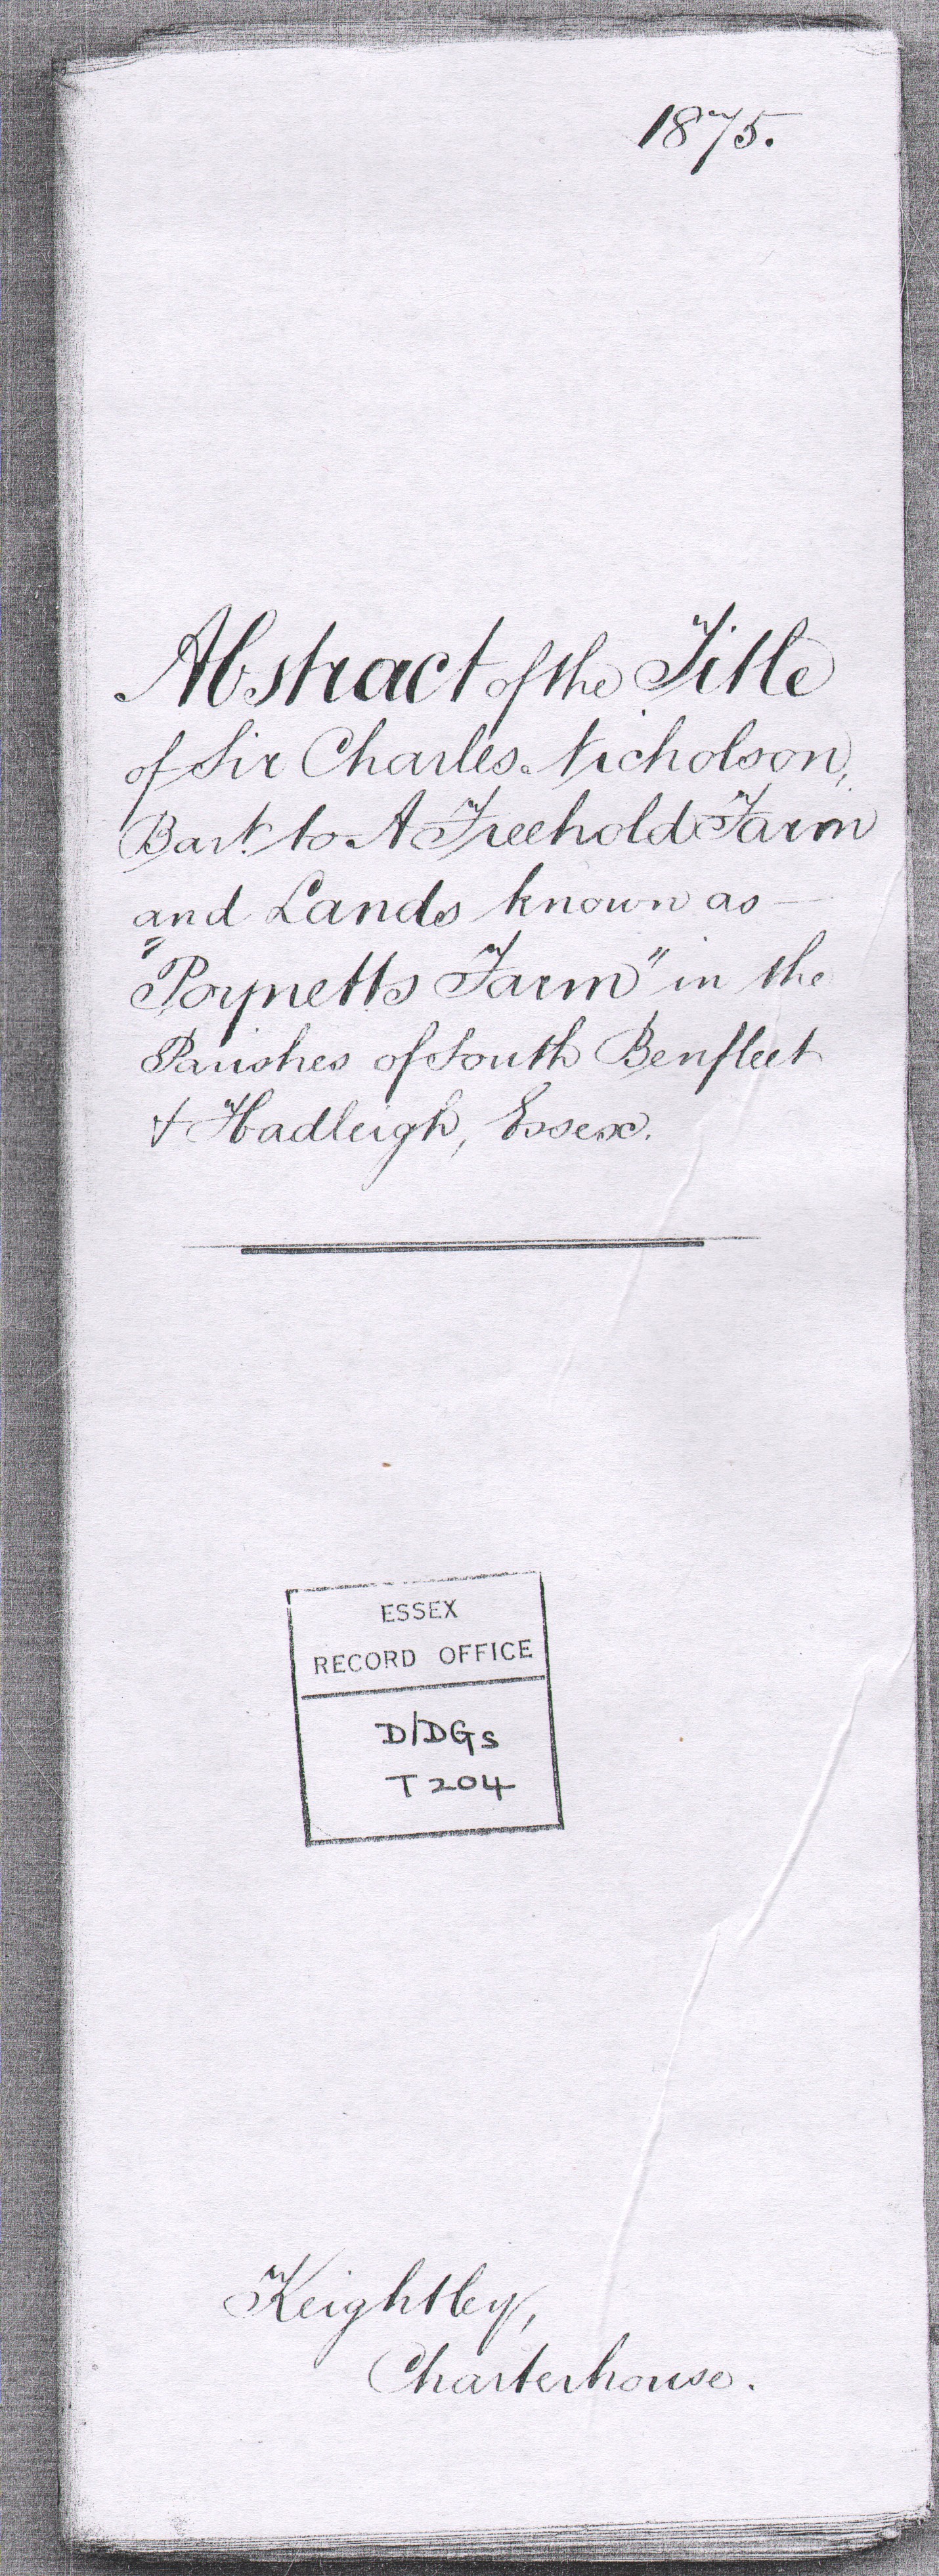 1875.
Abstract of the Title
of Sir Charles Nicholson,
Bart. to A Freehold Farm
and Lands known as —
"Poynetts Farm" in the
Parishes of South Benfleet
& Hadleigh, Essex.
ESSEX
RECORD OFFICE
D/DGs
T204
Keightley,
Charterhouse.